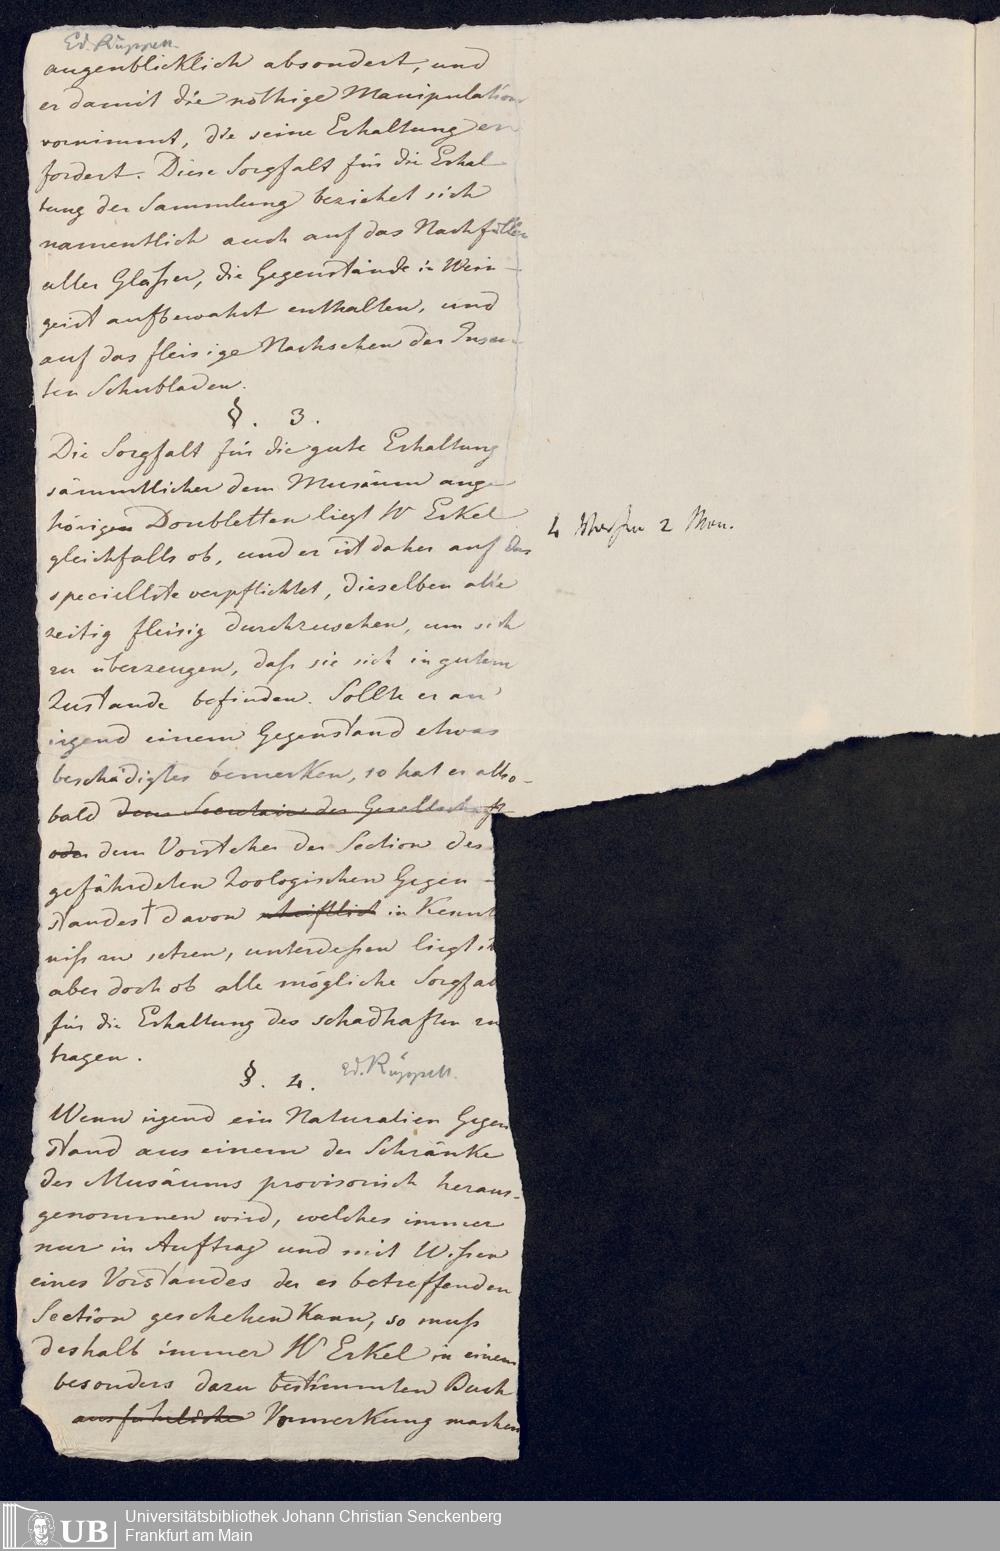 Ed. Rüppell.
augenblicklich absondert, und
er damit die nöthige Manipulation
vornimmt, die seine Erhaltung er
fordert. Diese Sorgfalt für die Erhal
tung der Sammlung beziehet sich
namentlich auch auf das Nachfüllen
aller Gläßer, die Gegenstände in Wein-
geist aufbewahrt enthalten, und
auf das fleisige Nachsehen der Insec-
ten Schubladen.
§. 3.
Die Sorgfalt für die gute Erhaltung
sämmtlicher dem Musäum ange
hörigen Doubletten liegt H Erkel
gleichfalls ob, und er ist daher auf das
speciellste verpflichtet, dieselben alle
zeitig fleisig durchzusehen, um sich
zu überzeugen, daß sie sich in gutem
Zustande befinden. Sollte er an
irgend einem Gegenstand etwas
beschädigtes bemerken, so hat er also-
bald dem Secretair der Gesellschaft
oder dem Vorsteher der Section des
gefährdeten Zoologischen Gegen-
standes† davon schriftlich in Kennt
niß zu setzen, unterdeßen liegt ihm
aber doch ob alle mögliche Sorgfalt
für die Erhaltung des schadhaften zu
tragen.
§. 4.
Ed. Rüppell.
Wenn irgend ein Naturalien Gegen
stand aus einem der Schränke
des Musäums provisorisch heraus-
genommen wird, welches immer
nur in Auftrag und mit Wißen
eines Vorstandes der es betreffenden
Section geschehen kann, so muß
deshalb immer H Erkel in einem
besonders dazu bestimmten Buch
ausführliche Vormerkung machen
4 2 Mon.
UB
Universitätsbibliothek Johann Christian Senckenberg
Frankfurt am Main